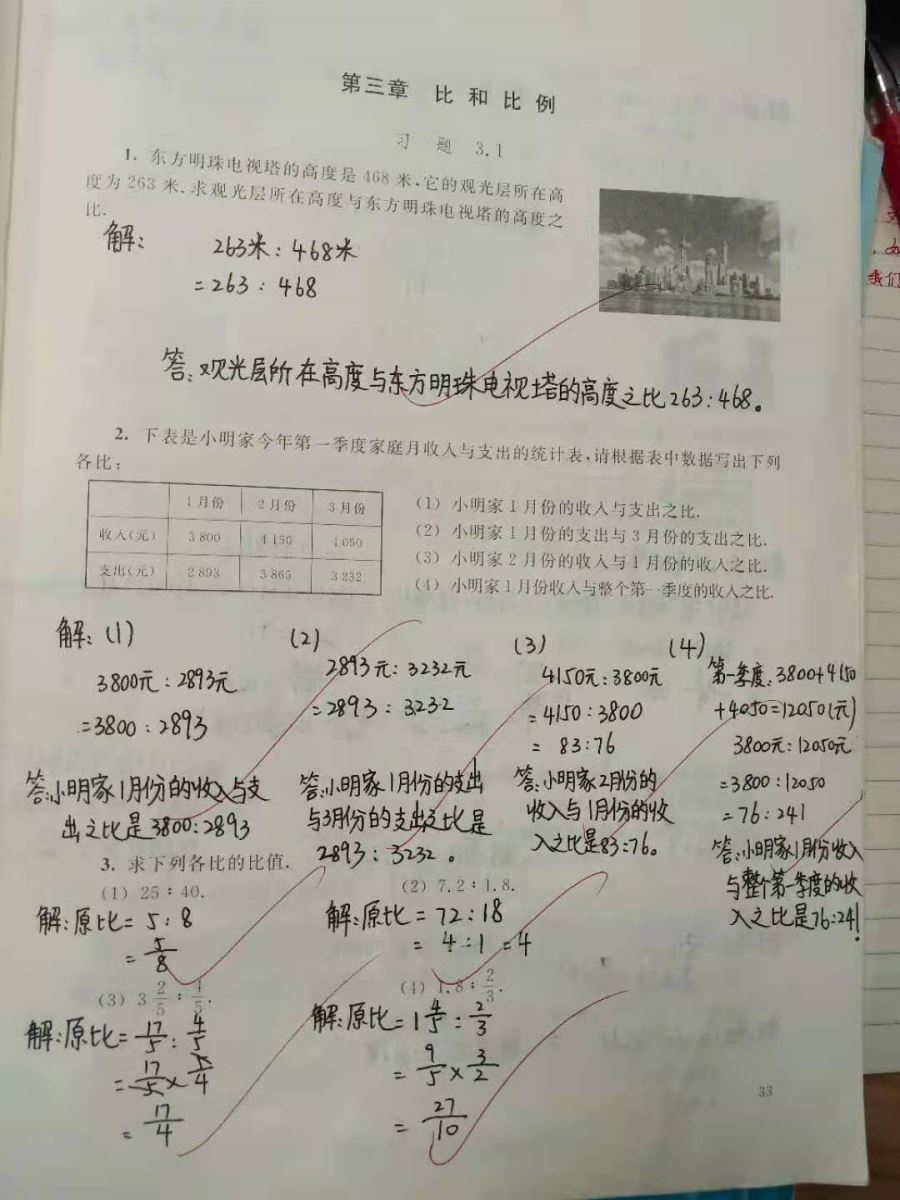 第三章 比和比例
习题 3.1
1. 东方明珠电视塔的高度是468米,它的观光层所在高
度为263米.求观光层所在高度与东方明珠电视塔的高度之
比.
解: 263米:468米
=263:468
答:观光层所在高度与东方明珠电视塔的高度之比263:468。
2. 下表是小明家今年第一季度家庭月收入与支出的统计表,请根据表中数据写出下列
各比:
1月份 2月份 3月份
收入(元) 3 800 4 150 4 050
支出(元) 2 893 3 865 3 232
(1) 小明家1月份的收入与支出之比.
(2) 小明家1月份的支出与3月份的支出之比.
(3) 小明家2月份的收入与1月份的收入之比.
(4) 小明家1月份收入与整个第一季度的收入之比.
解:(1)
3800元:2893元
=3800:2893
答:小明家1月份的收入与支
出之比是3800:2893
(2)
2893元:3232元
=2893:3232
答:小明家1月份的支出
与3月份的支出之比是
2893:3232。
(3)
4150元:3800元
=4150:3800
=83:76
答:小明家2月份的
收入与1月份的收
入之比是83:76。
(4)
第一季度:3800+4150
+4050=12050(元)
3800元:12050元
=3800:12050
=76:241
答:小明家1月份收入
与整个第一季度的收
入之比是76:241.
3. 求下列各比的比值.
(1) 25:40.
解:原比=5:8
=5/8
(2) 7.2:1.8.
解:原比=72:18
=4:1=4
(3) 3 2/5:4/5.
解:原比=17/5:4/5
=17/5×5/4
=17/4
(4) 1.8:2/3.
解:原比=1 4/5:2/3
=9/5×3/2
=27/10
33
我们